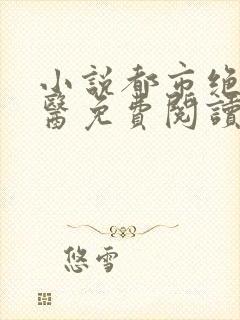 小説都市絶
醫免費閱讀
悠雪